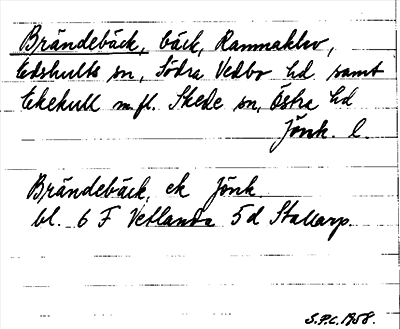 Brändebäck, bäck, Rammaklev,
Edshults sn, Södra Vedbo hd samt
Ekekull m.fl. Skede sn, Östra hd
Jönk. l.
Brändebäck, ek Jönk.
bl. 6 F Vetlanda 5 d Stallarp.
S.P.C. 1958.